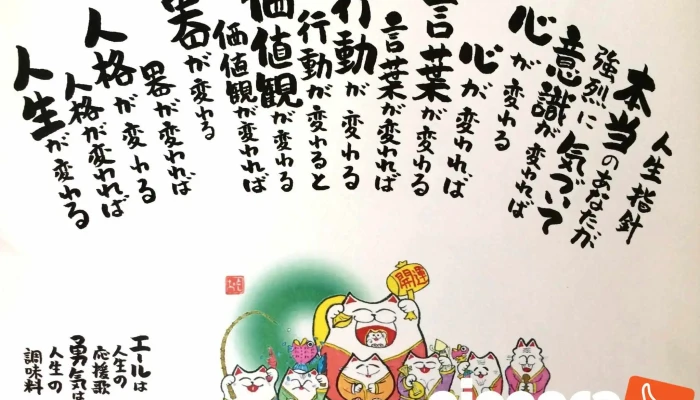 人生指針
本当のあなたが
強烈に気づいて
意識が変われば
心が変わる
心が変われば
言葉が変わる
言葉が変われば
行動が変わる
行動が変わると
価値観が変わる
価値観が変われば
器が変わる
器が変われば
人格が変わる
人格が変われば
人生が変わる
開運
エールは
人生の
応援歌
勇気は
人生の
調味料